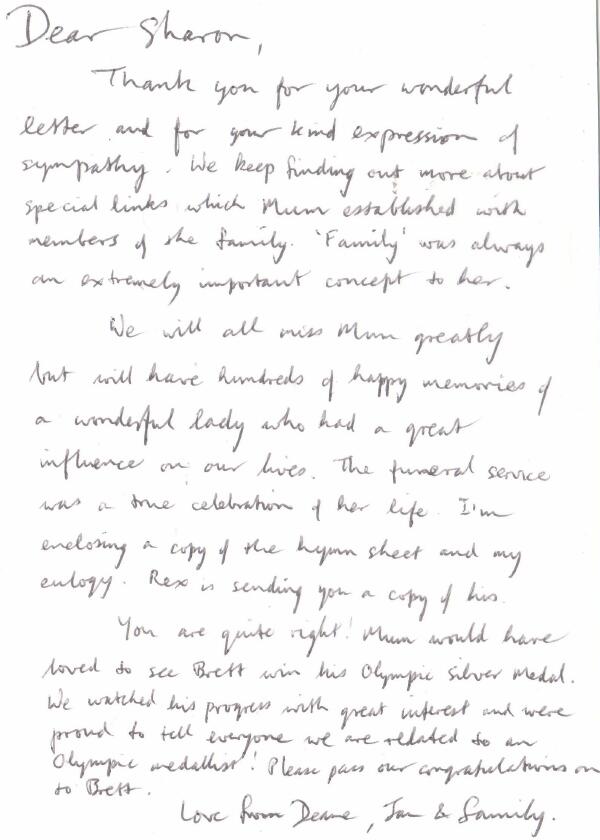 Dear Sharon,
Thank you for your wonderful
letter and for your kind expression of
sympathy. We keep finding out more about
special links which Mum established with
members of the family. 'Family' was always
an extremely important concept to her.
We will all miss Mum greatly
but will have hundreds of happy memories of
a wonderful lady who had a great
influence on our lives. The funeral service
was a true celebration of her life. I'm
enclosing a copy of the hymn sheet and my
eulogy. Rex is sending you a copy of his.
You are quite right! Mum would have
loved to see Brett win his Olympic Silver Medal.
We watched his progress with great interest and were
proud to tell everyone we are related to an
Olympic medallist! Please pass our congratulations on
to Brett.
Love from Deane, Jan & family.